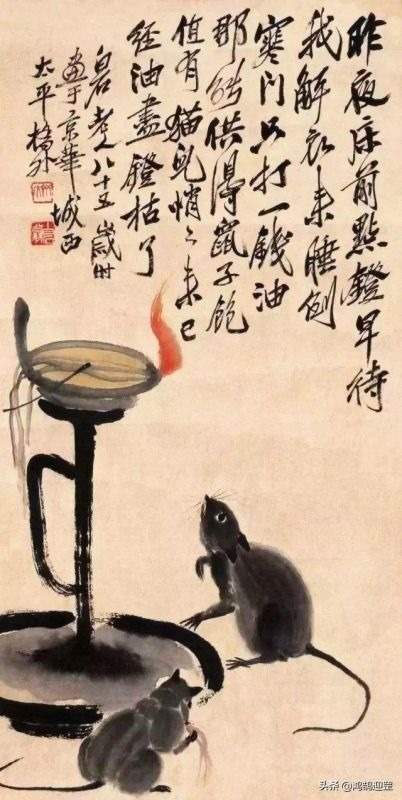 昨夜床前點鐙早待
我解衣来睡倒
寒门只打一錢油
那能供得鼠子飽
值有猫兒悄〻来已
经油盡鐙枯了
白石老人八十五歲時
畫于京華城西
太平橋外
头条@鸿鹄迎罡